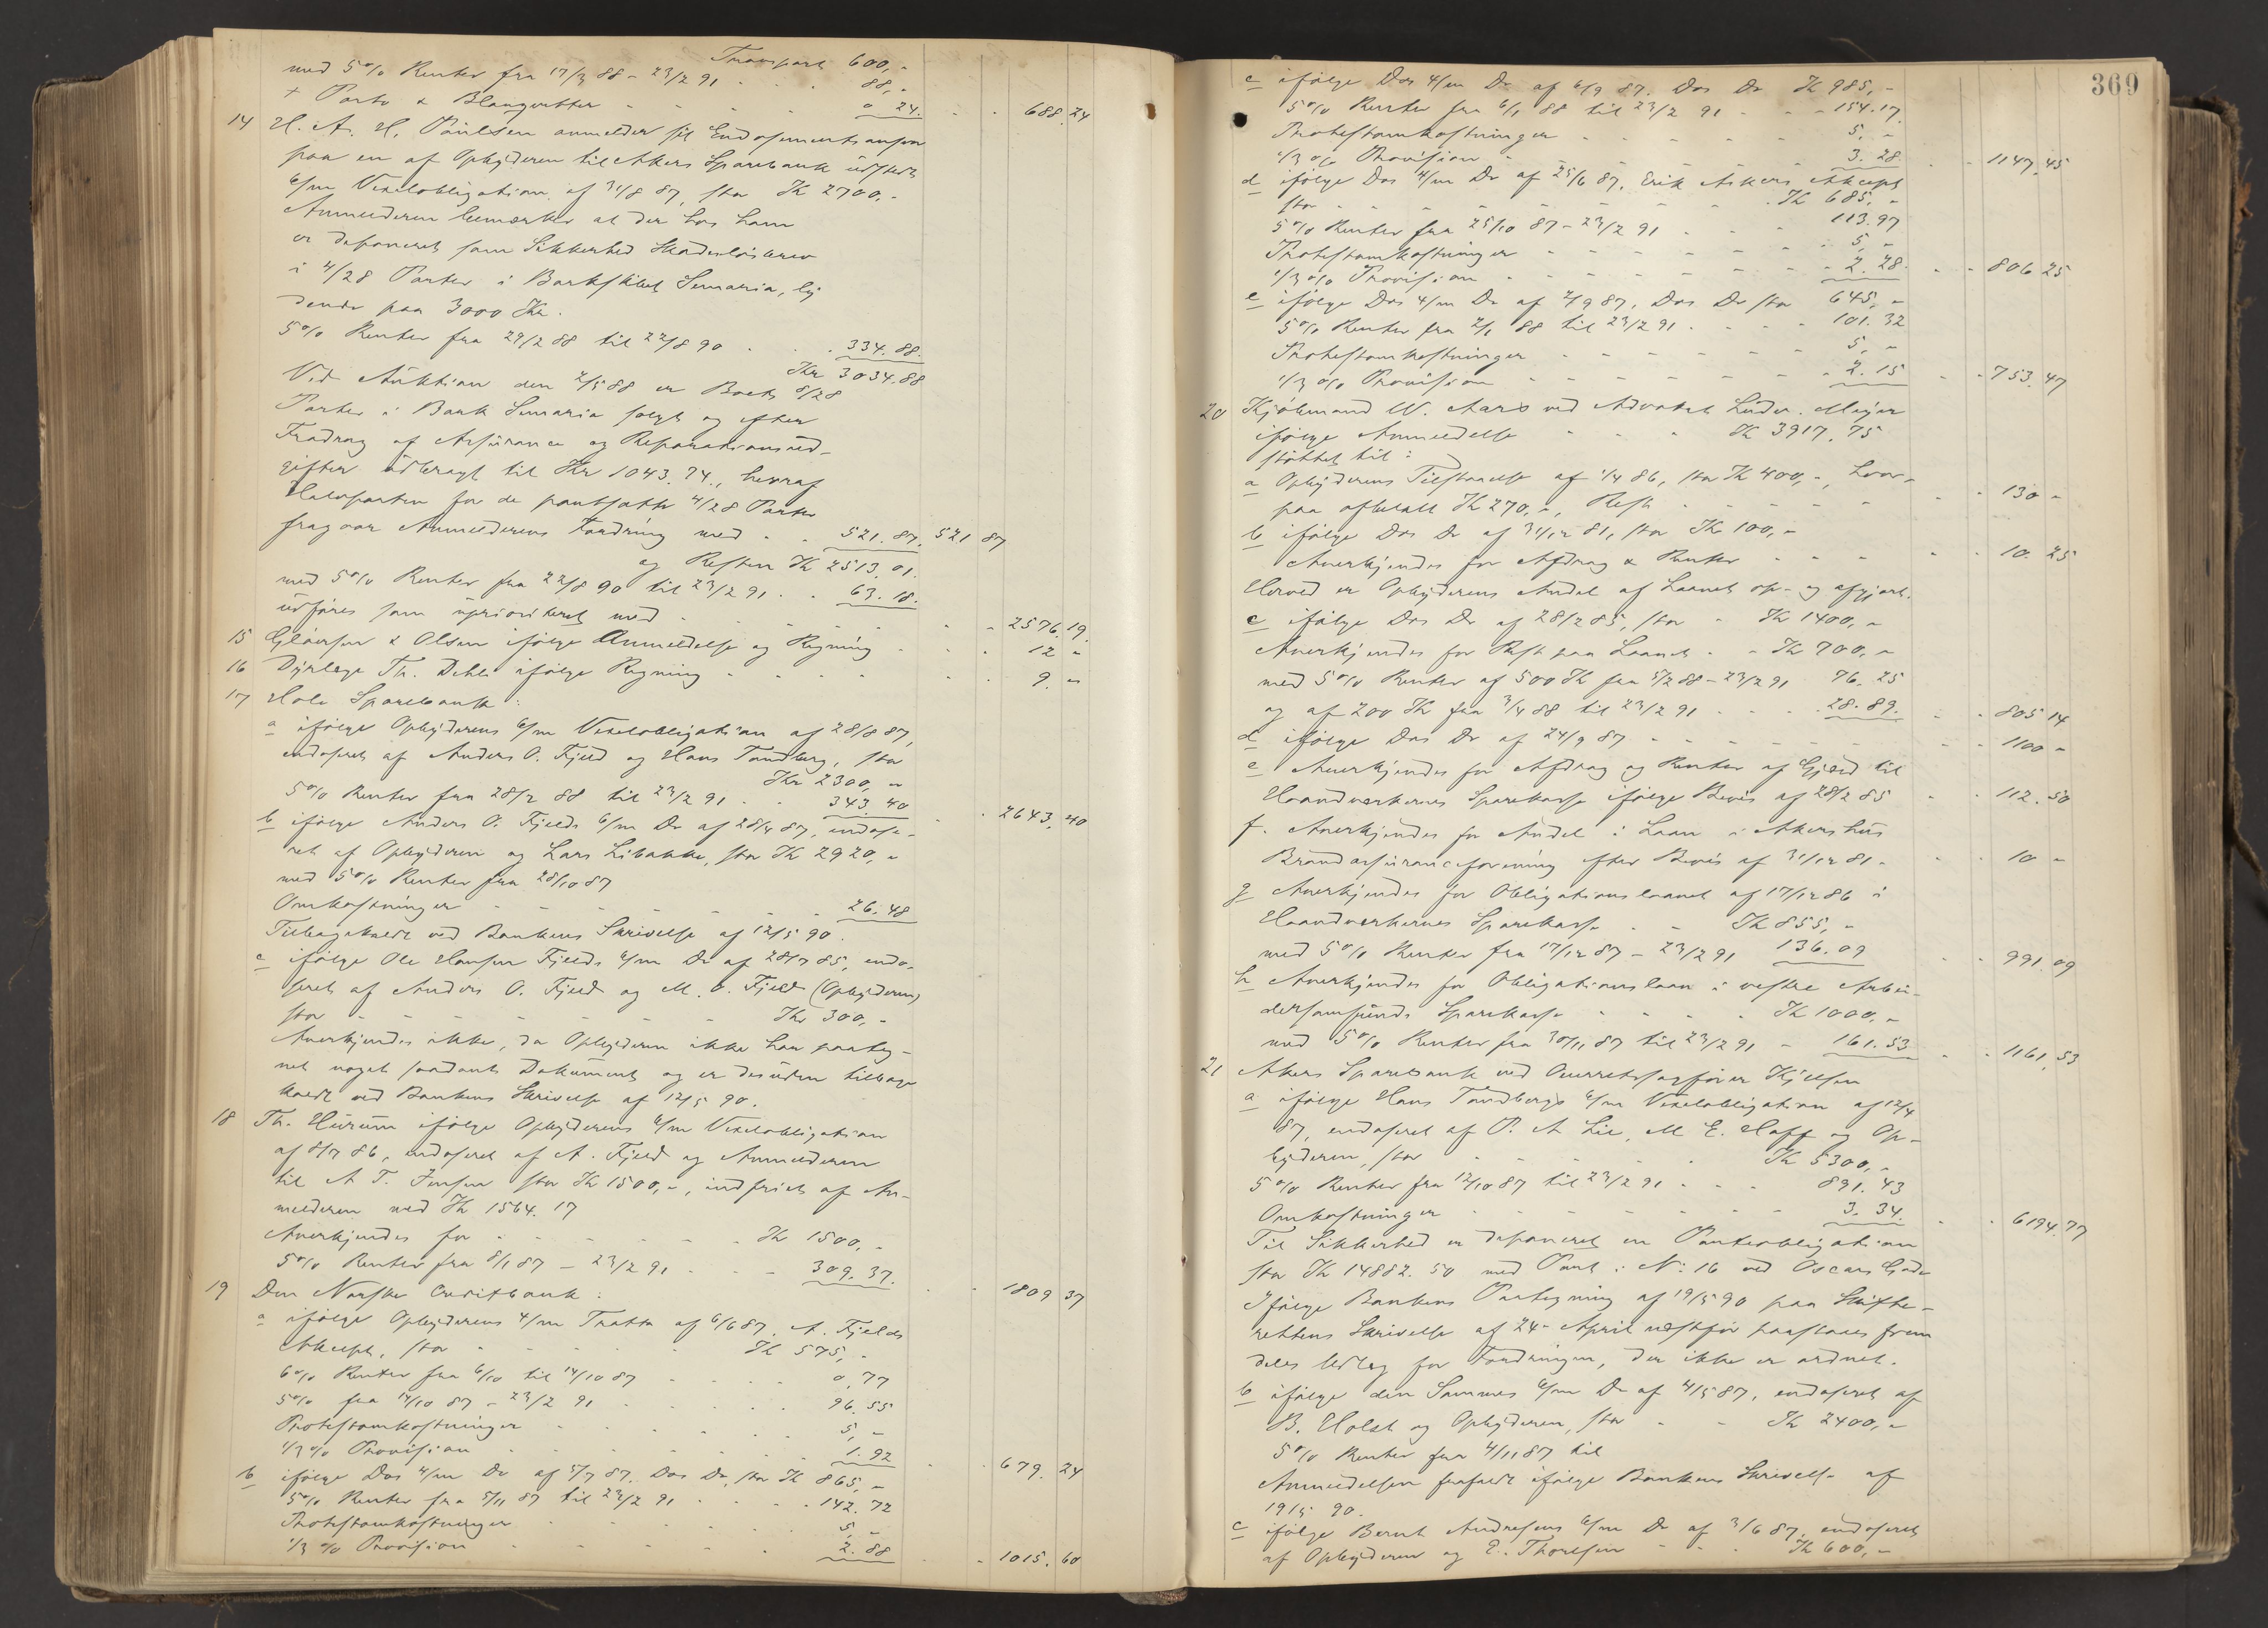 Transport 600,-
med 5% Renter fra 17/3 88 - 23/2 91 - - 88,-
+ Porto & Blanquetter - - - - 0 24. - - 688.24
14 H. A. H. Paulsen anmelder sit Endosementsansvar
paa en af Opbyderen til Akers Sparebank udstedt
6/m Vexelobligation af 31/8 87, stor Kr 2700,-
Anmelderen bemærker at der hos ham
er deponeret som Sikkerhed Skadesløsbrev
i 4/28 Parter i Barkskibet Semaria, ly
dende paa 3000 Kr.
5% Renter fra 29/2 88 til 22/8 90 - - 334.88.
Kr 3034.88
Ved Auktion den 2/5 88 er Boets 8/28
Parter i Bark Semaria solgt og efter
Fradrag af Assurance og Reparationsud-
gifter udbragt til Kr 1043.74, hvoraf
Halvparten for de pantsatte 4/28 Parter
fragaar Anmelderens Fordring med - - 521.87. 521 87
og Resten Kr 2513.01.
med 5% Renter fra 22/8 90 til 23/2 91 - - 63.18.
udføres som uprioriteret med - - - - - 2576.19.
15 Gläersen & Olsen ifølge Anmeldelse og Regning - - - 12 -
16 Dyrlæge Th. Dehli ifølge Regning - - - - - 9. -
17 Hole Sparebank:
a ifølge Opbyderens 6/m Vexelobligation af 28/8 87,
endoseret af Anders O. Fjeld og Hans Tandberg, stor
Kr 2300,-
5% Renter fra 28/2 88 til 23/2 91 - - 343.40 - - 2643.40
b ifølge Anders O. Fjelds 6/m Do af 28/4 87, endose-
ret af Opbyderen og Lars Libakke, stor Kr 2920,-
med 5% Renter fra 28/10 87
Omkostninger - - - - - - - 26.48
Tilbagekaldt ved Bankens Skrivelse af 12/5 90.
c ifølge Ole Hansen Fjelds 6/m Do af 28/7 85, endo-
seret af Anders O. Fjeld og M. O. Fjeld (Opbyderen)
stor - - - - - - - Kr 300,-
Anerkjendes ikke, da Opbyderen ikke har paateg-
net noget saadant Dokument og er desuden tilbage
kaldt ved Bankens Skrivelse af 12/5 90.
18 Th. Hurum ifølge Opbyderens 6/m Vexelobligation
af 8/7 86, endoseret af A. Fjeld og Anmelderen
til A T. Jensen stor Kr 1500,-, indfriet af An-
melderen med Kr 1564.17
Anerkjendes for - - - - - - Kr 1500,-
5% Renter fra 8/1 87 - 23/2 91 - - - 309.37. - - 1809 37
19 Den Norske Creditbank:
a ifølge Opbyderens 4/m Tratte af 6/6 87, A. Fjelds
Akcept, stor - - - - - Kr 575,-
6% Renter fra 6/10 til 14/10 87 - - - - 0.77
5% fra 14/10 87 - 23/2 91 - - - - - 96.55
Protestomkostninger - - - - - - 5,-
1/3% Provision - - - - - - - 1.92 - - 679.24
b ifølge Dos 4/m Do af 5/7 87. Dos Do, stor Kr 865,-
5% Renter fra 5/11 87 til 23/2 91 - - - - 142.72
Protestomkostninger - - - - - - 5,-
1/3% Provision - - - - - - 2.88 - - 1015.60
369
c ifølge Dos 4/m Do af 6/9 87. Dos Do Kr 985,-
5% Renter fra 6/1 88 til 23/2 91 - - - 154.17.
Protestomkostninger - - - - - 5,-
1/3% Provision - - - - - - 3.28 - - 1147.45
d ifølge Dos 4/m Do af 25/6 87, Erik Askers Akcept
stor - - - - - - - - Kr 685,-
5% Renter fra 25/10 87 - 23/2 91 - - - 113.97
Protestomkostninger - - - - - - 5,-
1/3% Provision - - - - - - - 2.28. - - 806 25
e ifølge Dos 4/m Do af 2/9 87. Dos Do stor 645,-
5% Renter fra 2/1 88 til 23/2 91 - - - - 101.32
Protestomkostninger - - - - - - 5,-
1/3% Provision - - - - - - - 2.15 - - 753.47
20 Kjøbmand W. Aars ved Advokat Luder. Meyer
ifølge Anmeldelse - - - Kr 3917.75
støttet til:
a Opbyderens Tilstaaelse af 1/4 86, stor Kr 400,-, hvor-
paa afbetalt Kr 270,-, Rest - - - - - - 130 -
b ifølge Dos Do af 31/12 81, stor Kr 100,-
Anerkjendes for Afdrag & Renter - - - - - 10.25
Herved er Opbyderens Andel af Laanet op- og afgjort.
c ifølge Dos Do af 28/2 85, stor - Kr 1400,-
Anerkjendes for Rest paa Laanet - - Kr 700,-
med 5% Renter af 500 Kr fra 5/2 88 - 23/2 91 76.25
og af 200 Kr fra 3/4 88 til 23/2 91 - - - 28.89. - - 805 14
d ifølge Dos Do af 24/9 87 - - - - - - - 1100 -
e Anerkjendes for Afdrag og Renter af Gjæld til
Haandværkernes Sparekasse ifølge Bevis af 28/2 85 - - 112.50
f. Anerkjendes for Andel i Laan i Akershus
Brandassuranceforening efter Bevis af 31/12 81 - - - 10 -
g Anerkjendes for Obligationslaanet af 17/12 86 i
Haandværkernes Sparekasse - - Kr 855,-
med 5% Renter fra 17/12 87 - 23/2 91 136.09 - - 991.09
h Anerkjendes for Obligationslaan i vestre Arbei-
dersamfunds Sparekasse - - - - Kr 1000,-
med 5% Renter fra 30/11 87 til 23/2 91 - 161.53 - - 1161.53
21 Akers Sparebank ved Overretssagfører Kjelsen
a ifølge Hans Tandbergs 6/m Vexelobligation af 12/4
87, endoseret af P. A Lie, M E. Hoff og Op-
byderen, stor - - - - - Kr 5300,-
5% Renter fra 12/10 87 til 23/2 91 - - - 891.43
Omkostninger - - - - - - - 3.34. - - 6194.77
Til Sikkerhed er deponeret en Panteobligation
stor Kr 14882.50 med Pant i No 16 ved Oscars Gade
Ifølge Bankens Paategning af 19/5 90 paa Skifte-
rettens Skrivelse af 24- April næstfør paastaaes frem
deles Udlæg for Fordringen, der ikke er ordnet.
b ifølge den Sammes 6/m Do af 4/5 87, endoseret af
B. Holst og Opbyderen, stor - - Kr 2400,-
5% Renter fra 4/11 87 til
Anmeldelsen frafaldt ifølge Bankens Skrivelse af
19/5 90.
c ifølge Bernt Andresens 6/m Do af 3/6 87, endoseret
af Opbyderen og E. Thoresen - - - Kr 600,-